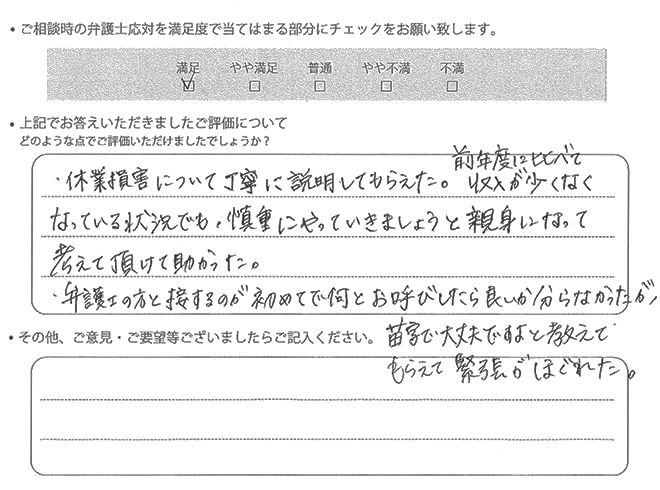 ・ご相談時の弁護士応対を満足度で当てはまる部分にチェックをお願い致します。
満足 やや満足 普通 やや不満 不満
・上記でお答えいただきましたご評価について
どのような点でご評価いただけましたでしょうか？
・休業損害について丁寧に説明してもらえた。前年度に比べて収入が少なく
なっている状況でも、慎重にやっていきましょうと親身になって
考えて頂けて助かった。
・弁護士の方と接するのが初めてで何とお呼びしたら良いか分らなかったが、
苗字で大丈夫ですよと教えて
もらえて緊張がほぐれた。
・その他、ご意見・ご要望等ございましたらご記入ください。